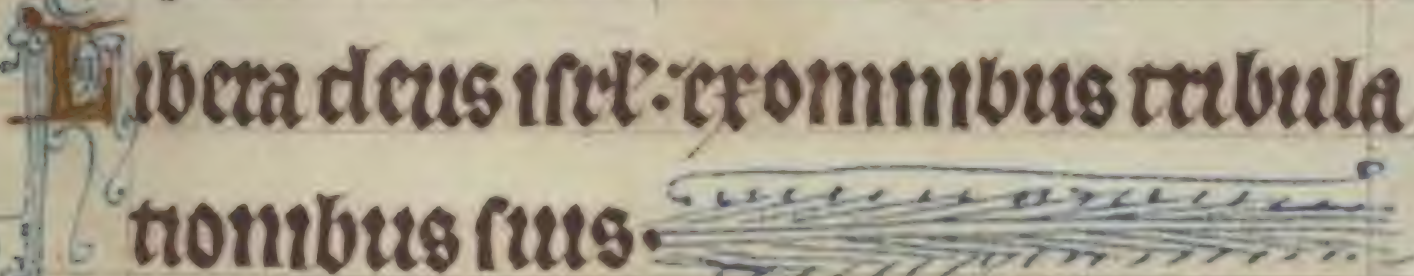 Libera deus isrl': ex omnibus tribula
tionibus suis.